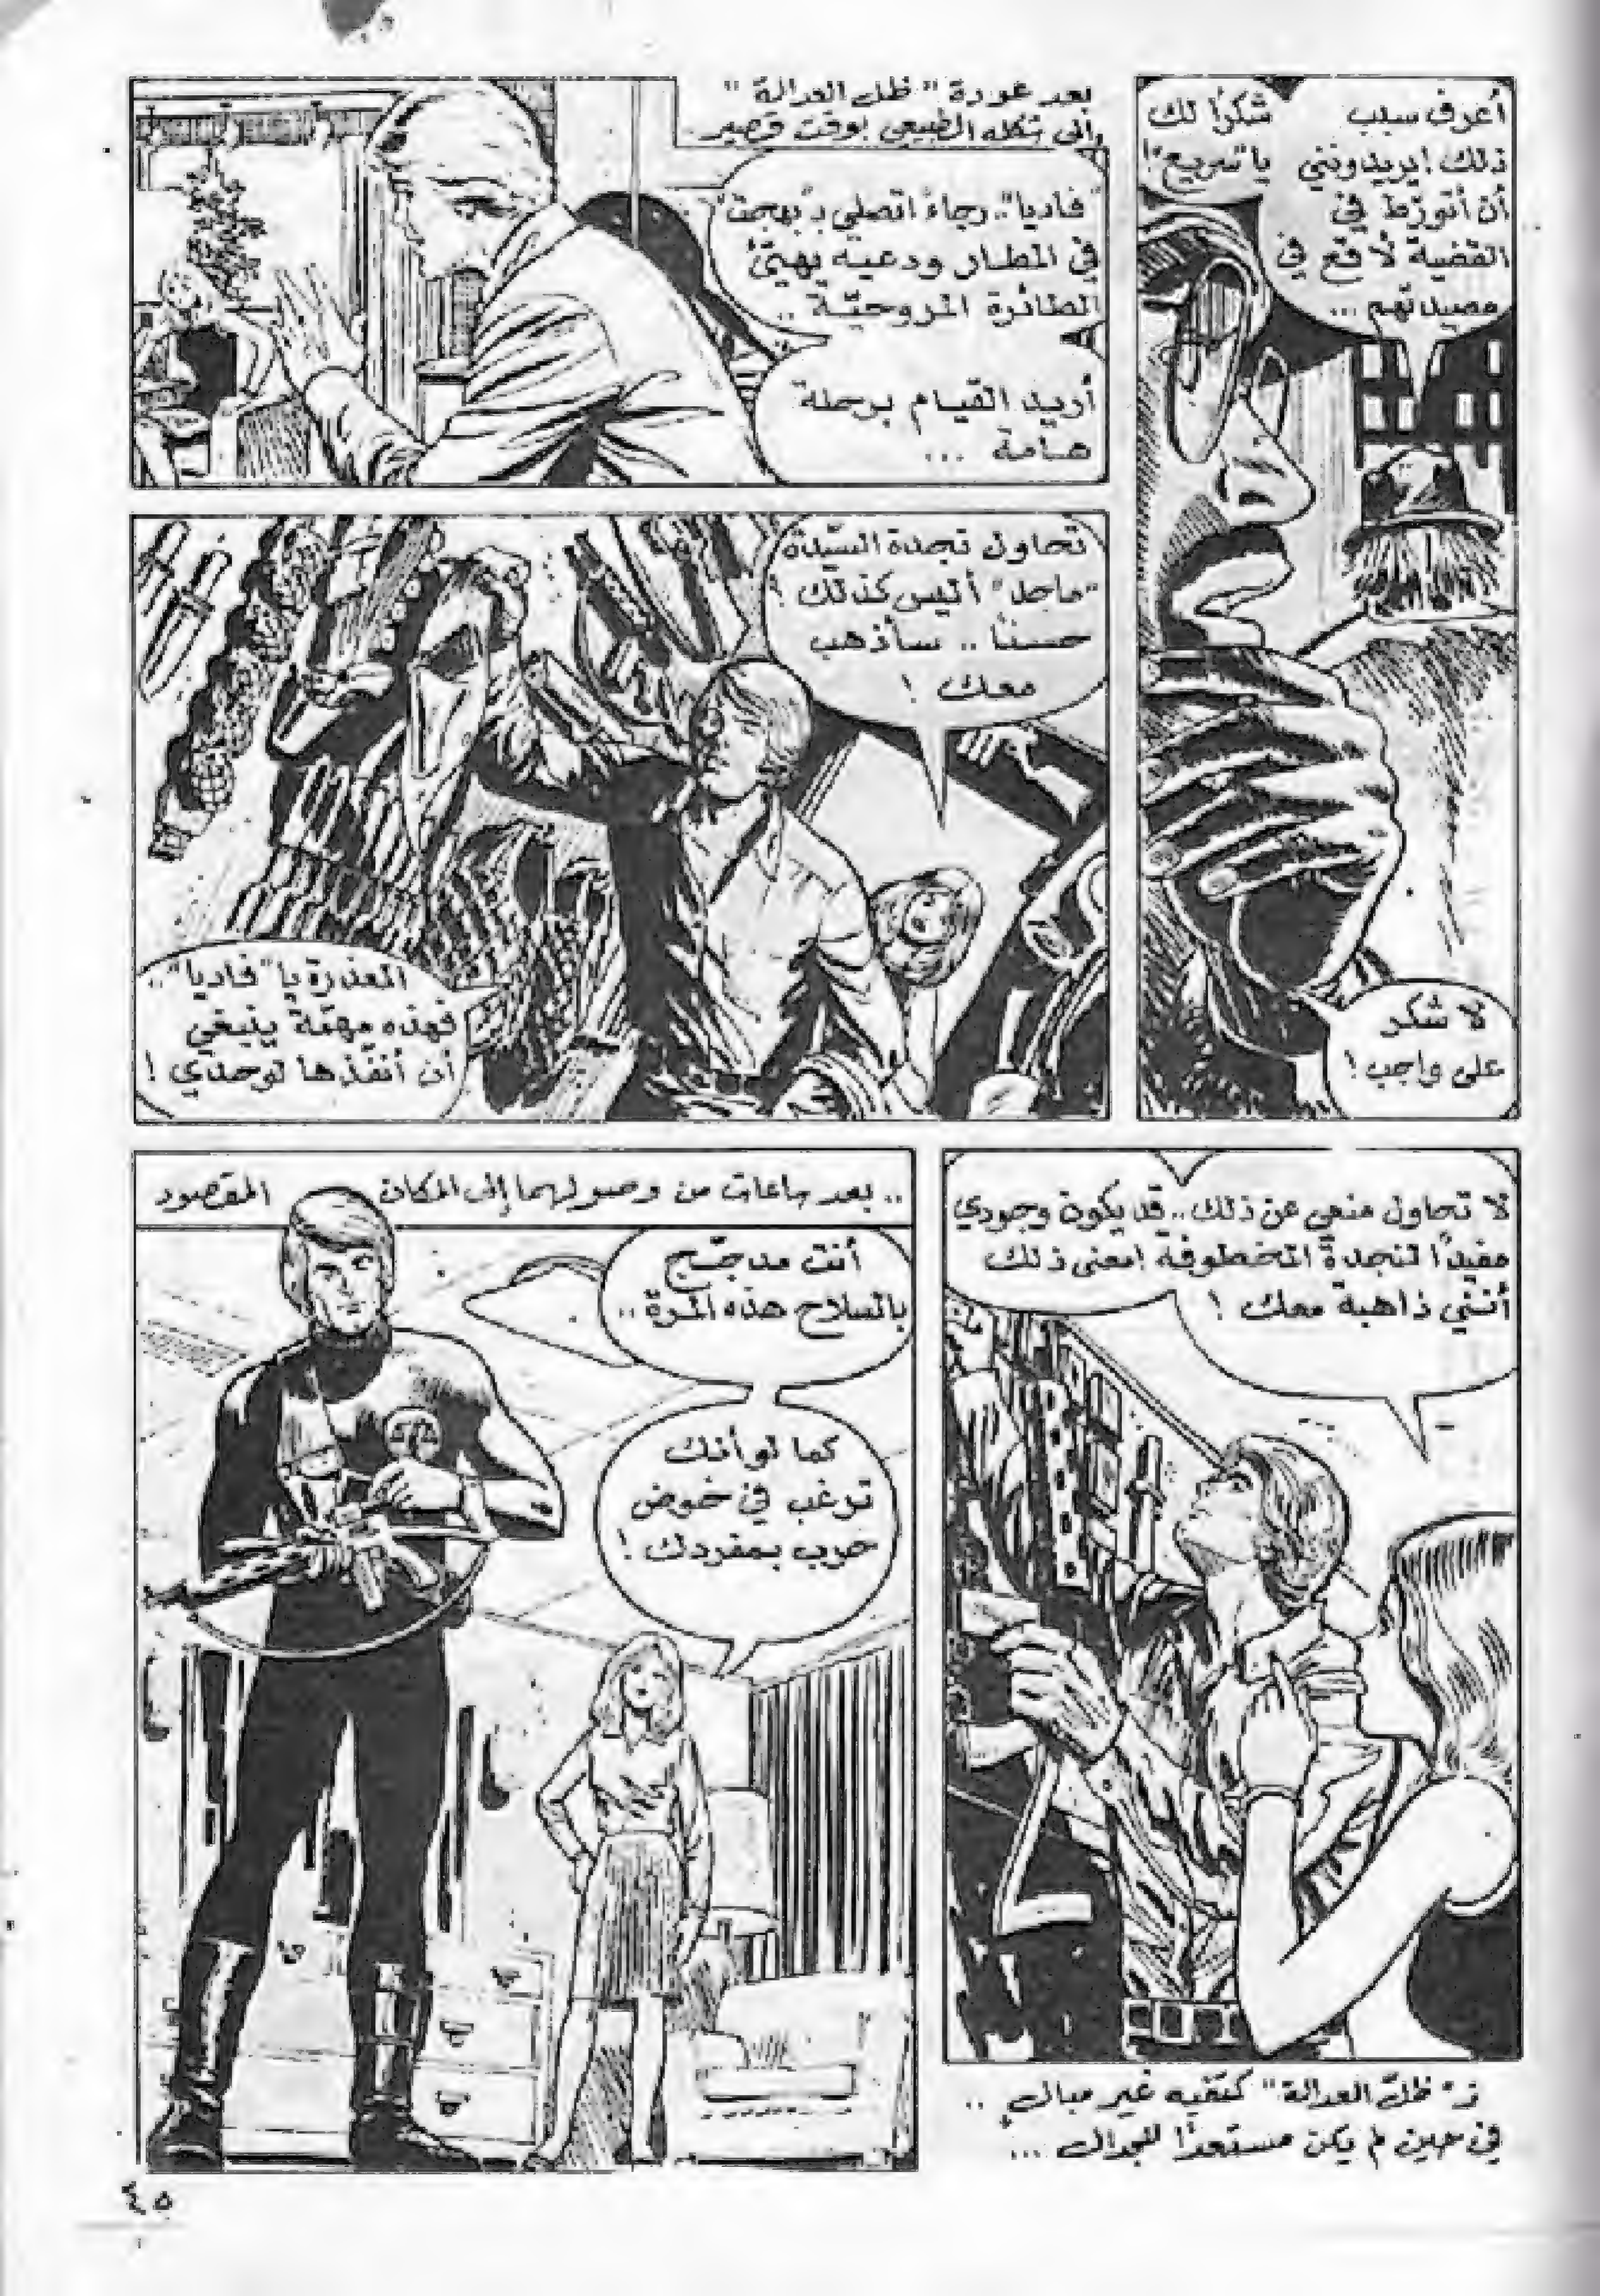 أعرف سبب
ذلك! يريدونني
أن أتورّط في
القضية لأقع في
مصيدتهم ...
شكرًا لك
يا "سريع"!
لا شكر
على واجب!
بعد عودة "ظل العدالة"
إلى شكله الطبيعي بوقت قصير
"فاديا".. رجاءً اتصلي بـ"بهجت"
في المطار ودعيه يهيّئ
الطائرة المروحيّة ..
أريد القيام برحلة
هامة ...
تحاول نجدة السيّدة
"ماجد" أليس كذلك؟
حسنًا .. سأذهب
معك !
المعذرة يا "فاديا"..
فهذه مهمّة ينبغي
أن أنفّذها لوحدي !
لا تحاول منعي عن ذلك.. قد يكون وجودي
مفيدًا لنجدة المخطوفة! معنى ذلك
أنني ذاهبة معك !
هزّ "ظلّ العدالة" كتفيه غير مبالٍ ..
في حين لم يكن مستعدًا للجدال ...
.. بعد ساعات من وصولهما إلى المكان المقصود
أنت مدجّج
بالسلاح هذه المرّة ..
كما لو أنك
ترغب في خوض
حرب بمفردك !
٤٥